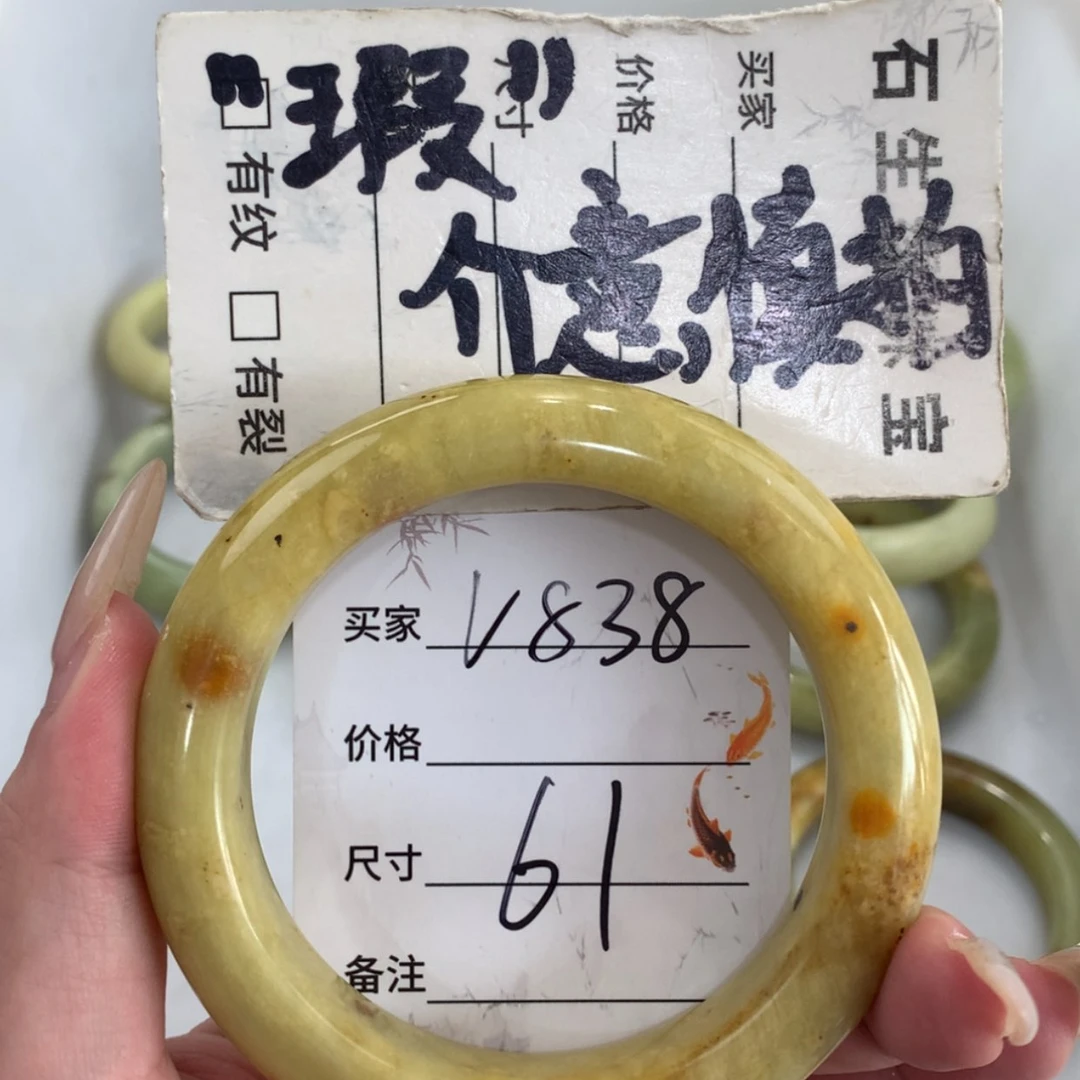 “瑕”
介意慎拍
石生 宝
买家
价格
尺寸
有纹 有裂
买家 V838
价格
尺寸 61
备注